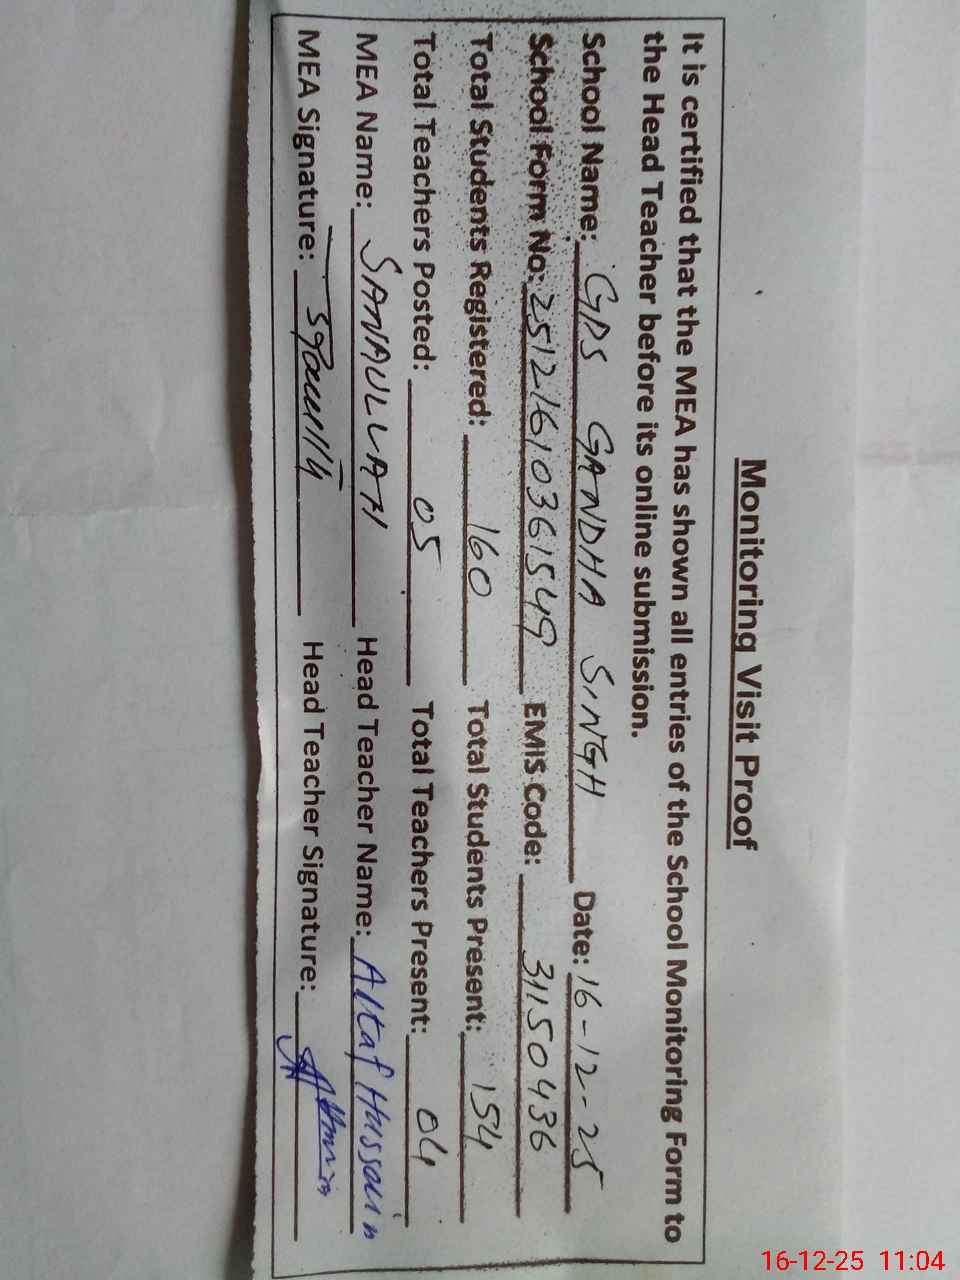 Monitoring Visit Proof
It is certified that the MEA has shown all entries of the School Monitoring Form to
the Head Teacher before its online submission.
School Name: GPS GANDHA SINGH Date: 16-12-25
School Form No: 2512161036 1549 EMIS Code: 31150436
Total Students Registered: 160 Total Students Present: 154
Total Teachers Posted: 05 Total Teachers Present: 04
MEA Name: SANAULLAH Head Teacher Name: Altaf Hussain
MEA Signature: Head Teacher Signature:
16-12-25 11:04